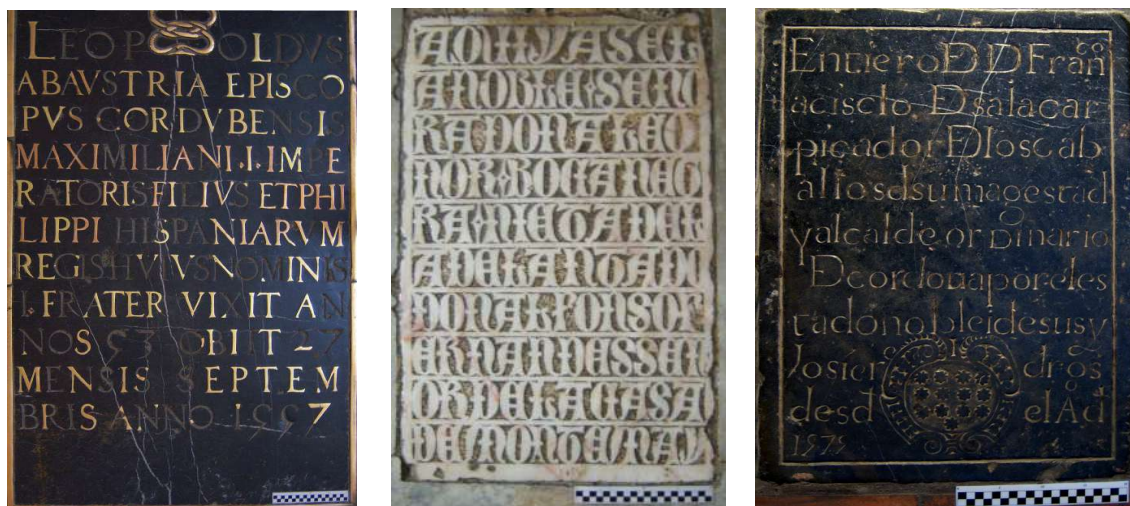 LEOPOLDVS
AB AVSTRIA EPISCO
PVS CORDVBENSIS
MAXIMILIANI.I.IMPE
RATORIS FILIVS ET PHI
LIPPI HISPANIARVM
REGIS HVIVS NOMINIS
I. FRATER VIXIT AN
NOS 53 OBIIT 27
MENSIS SEPTEM
BRIS ANNO 1557
AQUI YASE L
A NOBLE SENN
RA DONA LEO
NOR BOCANEG
RA NIETA DEL
ADELANTADO
DON ALFONSO F
ERNANDES SEN
OR DE LA CASA
DE MONTEMAY
Entiero D D Fran co
aciscto D salacar
picador D los cab
allos d su magestad
y alcalde orDinario
D cordoua por el es
tado noble i de sus y
Josier dros
desd el Ad
1575